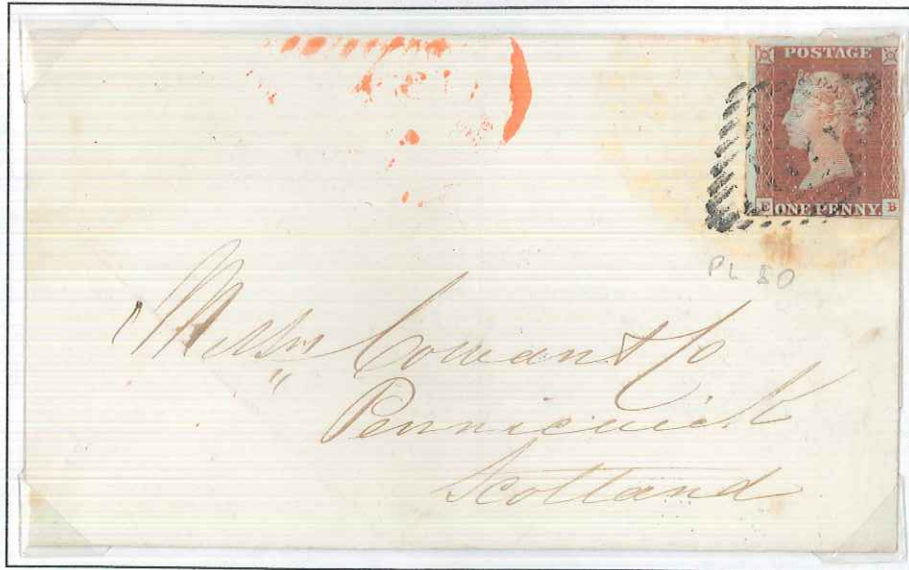 POSTAGE
E ONE PENNY B
PL 80
Messrs Cowan & Co
Pennicuick
Scotland